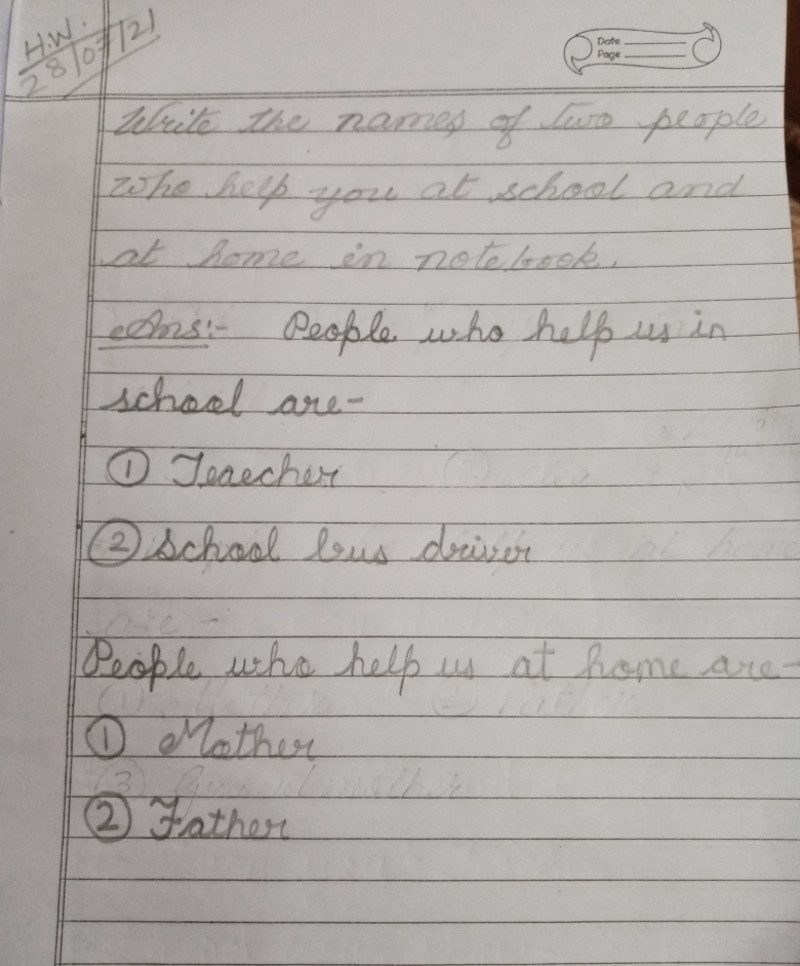 H.W.
28/07/21
Date
Page
Write the names of two people
who help you at school and
at home in notebook.
Ans:- People who help us in
school are-
① Teaecher
② School bus driver
People who help us at home are-
① Mother
② Father